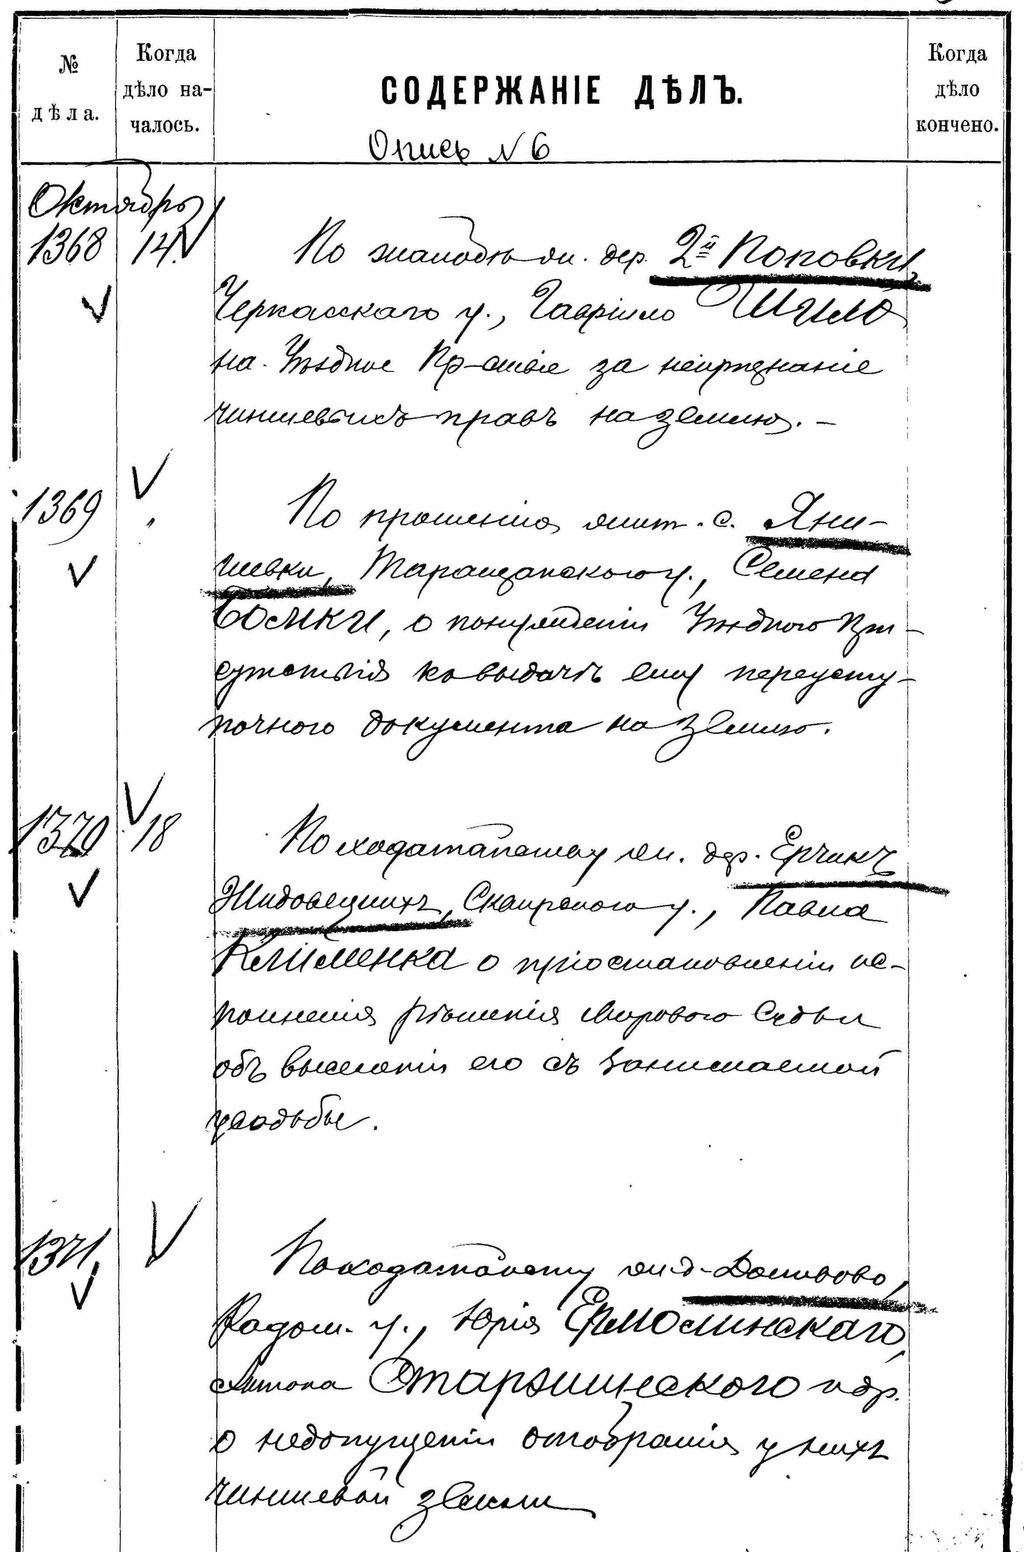 № дѣла.
Когда дѣло на-чалось.
СОДЕРЖАНІЕ ДѢЛЪ.
Когда дѣло кончено.
Опись № 6
Октябрь
1368 14. По жалобѣ жи. дер. 2й Поповки,
Черкасскаго у., Гавріило Шило
на Уѣздное Пр-ствіе за непризнаніе
чиншевыхъ правъ на землю. –
1369 " По прошенію жит. с. Яни-
шевки, Таращанскаго у., Семена
Бомки, о понужденіи Уѣзднаго При-
сутствія ко выдачѣ ему переусту-
почного документа на землю.
1370 18 По ходатайству жи. дер. Ерчикъ
Жидовецкихъ, Сквирскаго у., Павла
Клименка о пріостановленіи ис-
полненія рѣшенія Мирового Судьи
объ выселеніи его съ занимаемой
усадьбы.
1371, По ходатайству жи. д. Доливово,
Радом. у., Юрія Ермолинскаго,
Антона Старжинского и др.
о недопущеніи отобранія у нихъ
чиншевой земли